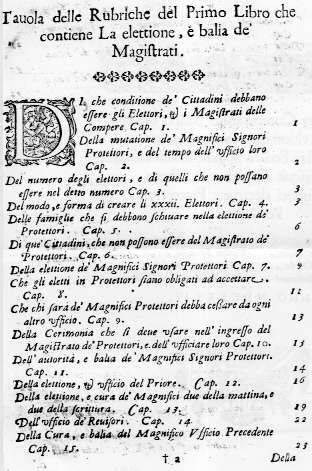 Tauola delle Rubriche del Primo Libro che
contiene La elettione, è balia de'
Magistrati.
DI, che conditione de' Cittadini debbano
essere gli Elettori, & i Magistrati delle
Compere. Cap. 1. 1
Della mutatione de' Magnifici Signori
Protettori, e del tempo dell'vfficio loro
Cap. 2. 2
Del numero degli elettori, e di quelli che non possano
essere nel detto numero Cap. 3. 3
Del modo, e forma di creare li xxxii. Elettori. Cap. 4. 3
Delle famiglie che si debbono schiuare nella elettione de'
Protettori. Cap. 5. 6
Di que' Cittadini, che non possono essere del Magistrato de'
Protettori. Cap. 6. 7
Della elettione de' Magnifici Signori Protettori Cap. 7. 9
Che gli eletti in Protettori siano obligati ad accettare.
Cap. 8. 12
Che chi sarà de' Magnifici Protettori debba cessare da ogni
altro vfficio. Cap. 9. 13
Della Cerimonia che si deue vsare nell' ingresso del
Magistrato de' Protettori, e dell'vfficiare loro Cap. 10. 13
Dell' autorità, e balia de' Magnifici Signori Protettori.
Cap. 11. 14
Della elettione, & vfficio del Priore. Cap. 12. 16
Della elettione, e cura de' Magnifici due della mattina, e
due della scrittura. Cap. 13. 19
Dell' vfficio de' Reuisori. Cap. 14 22
Della Cura, e balia del Magnifico Vfficio Precedente
Cap. 15. 23
† a Della